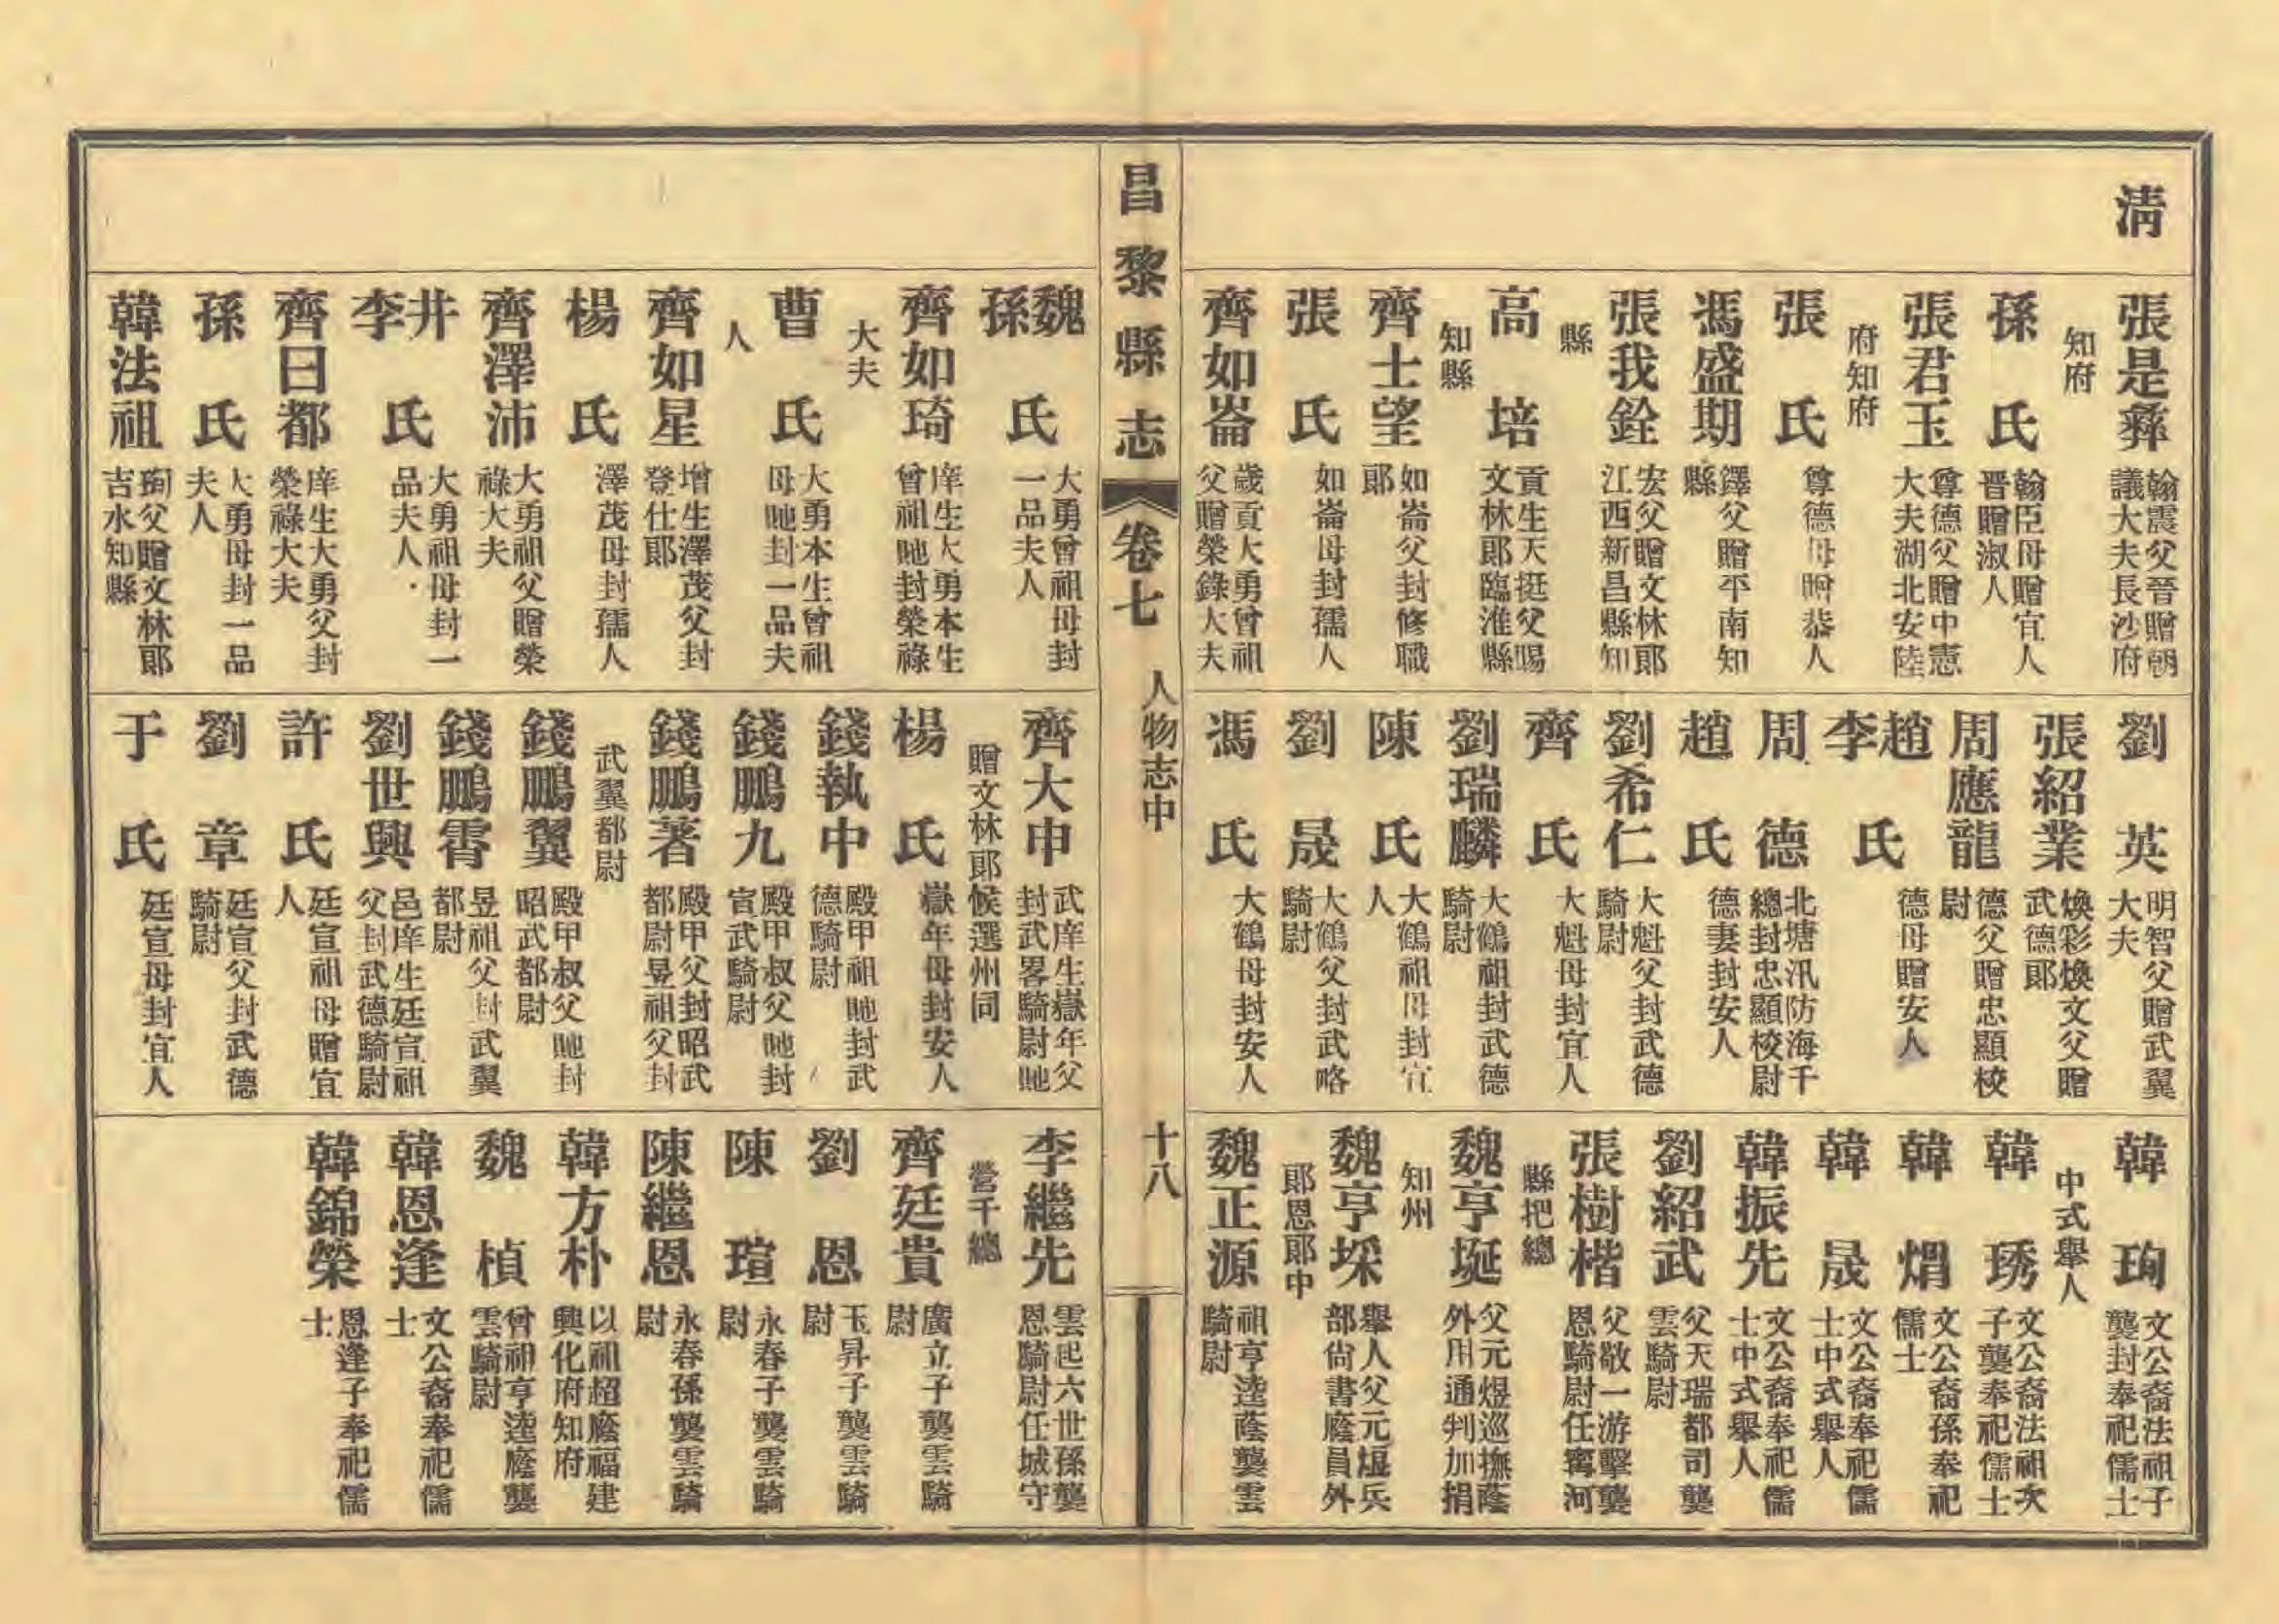 清
張是彝 翰震父晉贈朝議大夫長沙府知府
孫氏 翰臣母贈宜人晉贈淑人
張君玉 尊德父贈中憲大夫湖北安陸府知府
張氏 尊德母贈恭人
馮盛期 鐸父贈平南知縣
張我銓 宏父贈文林郎江西新昌縣知縣
高培 貢生天挺父賜文林郎臨淮縣知縣
齊士望 如崙父封修職郎
張氏 如崙母封孺人
齊如崙 歲貢大勇曾祖父贈榮錄大夫
劉英 明智父贈武翼大夫
張紹業 煥彩煥文父贈武德郎
周應龍 德父贈忠顯校尉
趙李氏 德母贈安人
周德 北塘汛防海千總封忠顯校尉
趙氏 德妻封安人
劉希仁 大魁父封武德騎尉
齊氏 大魁母封宜人
劉瑞麟 大鶴祖封武德騎尉
陳氏 大鶴祖母封宜人
劉晟 大鶴父封武略騎尉
馮氏 大鶴母封安人
韓珣 文公裔法祖子襲封奉祀儒士中式舉人
韓琇 文公裔法祖次子襲奉祀儒士
韓焆 文公裔孫奉祀儒士
韓晟 文公裔奉祀儒士中式舉人
韓振先 文公裔奉祀儒士中式舉人
劉紹武 父天瑞都司襲雲騎尉
張樹楷 父敬一游擊襲恩騎尉任寗河縣把總
魏亨埏 父元煜巡撫蔭外用通判加捐知州
魏亨埰 舉人父元煜兵部尙書廕員外郎恩郎中
魏正源 祖亨逵蔭襲雲騎尉
昌黎縣志 卷七 人物志中 十八
魏孫氏 大勇曾祖母封一品夫人
齊如琦 庠生大勇本生曾祖貤封榮祿大夫
曹氏 大勇本生曾祖母貤封一品夫人
齊如星 增生澤茂父封登仕郎
楊氏 澤茂母封孺人
齊澤沛 大勇祖父贈榮祿大夫
井李氏 大勇祖母封一品夫人
齊曰都 庠生大勇父封榮祿大夫
孫氏 大勇母封一品夫人
韓法祖 珣父贈文林郎吉水知縣
齊大申 武庠生嶽年父封武畧騎尉貤贈文林郎候選州同
楊氏 嶽年母封安人
錢執中 殿甲祖貤封武德騎尉
錢鵬九 殿甲叔父貤封宣武騎尉
錢鵬著 殿甲父封昭武都尉昱祖父封武翼都尉
錢鵬翼 殿甲叔父貤封昭武都尉
錢鵬霄 昱祖父封武翼都尉
劉世興 邑庠生廷宣祖父封武德騎尉
許氏 廷宣祖母贈宜人
劉章 廷宣父封武德騎尉
于氏 廷宣母封宜人
李繼先 雲起六世孫襲恩騎尉任城守營千總
齊廷貴 廣立子襲雲騎尉
劉恩 玉昇子襲雲騎尉
陳瑄 永春子襲雲騎尉
陳繼恩 永春孫襲雲騎尉
韓方朴 以祖超廕福建興化府知府
魏楨 曾祖亨逵廕襲雲騎尉
韓恩逢 文公裔奉祀儒士
韓錦榮 恩逢子奉祀儒士